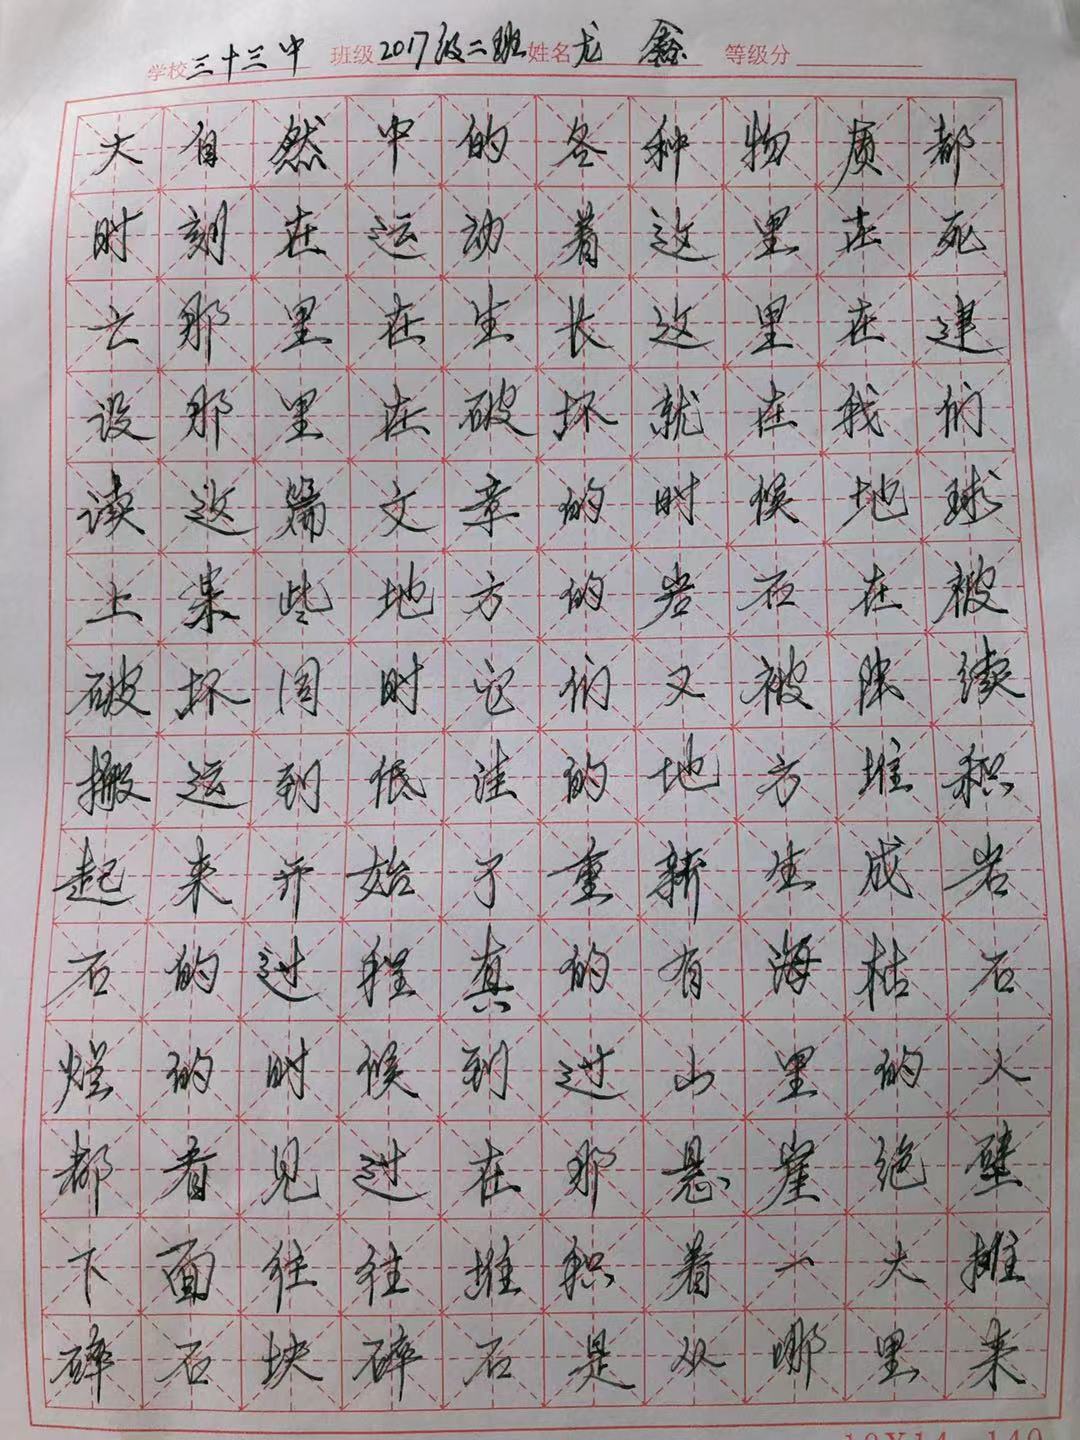 学校三十三中 班级2017级二班姓名龙鑫 等级分
大自然中的各种物质都
时刻在运动着这里在死
亡那里在生长这里在建
设那里在破坏就在我们
读这篇文章的时候地球
上某些地方的岩石在被
破坏同时它们又被陆续
搬运到低洼的地方堆积
起来开始了重新生成岩
石的过程真的有海枯石
烂的时候到过山里的人
都看见过在那悬崖绝壁
下面往往堆积着一大摊
碎石块碎石是从哪里来